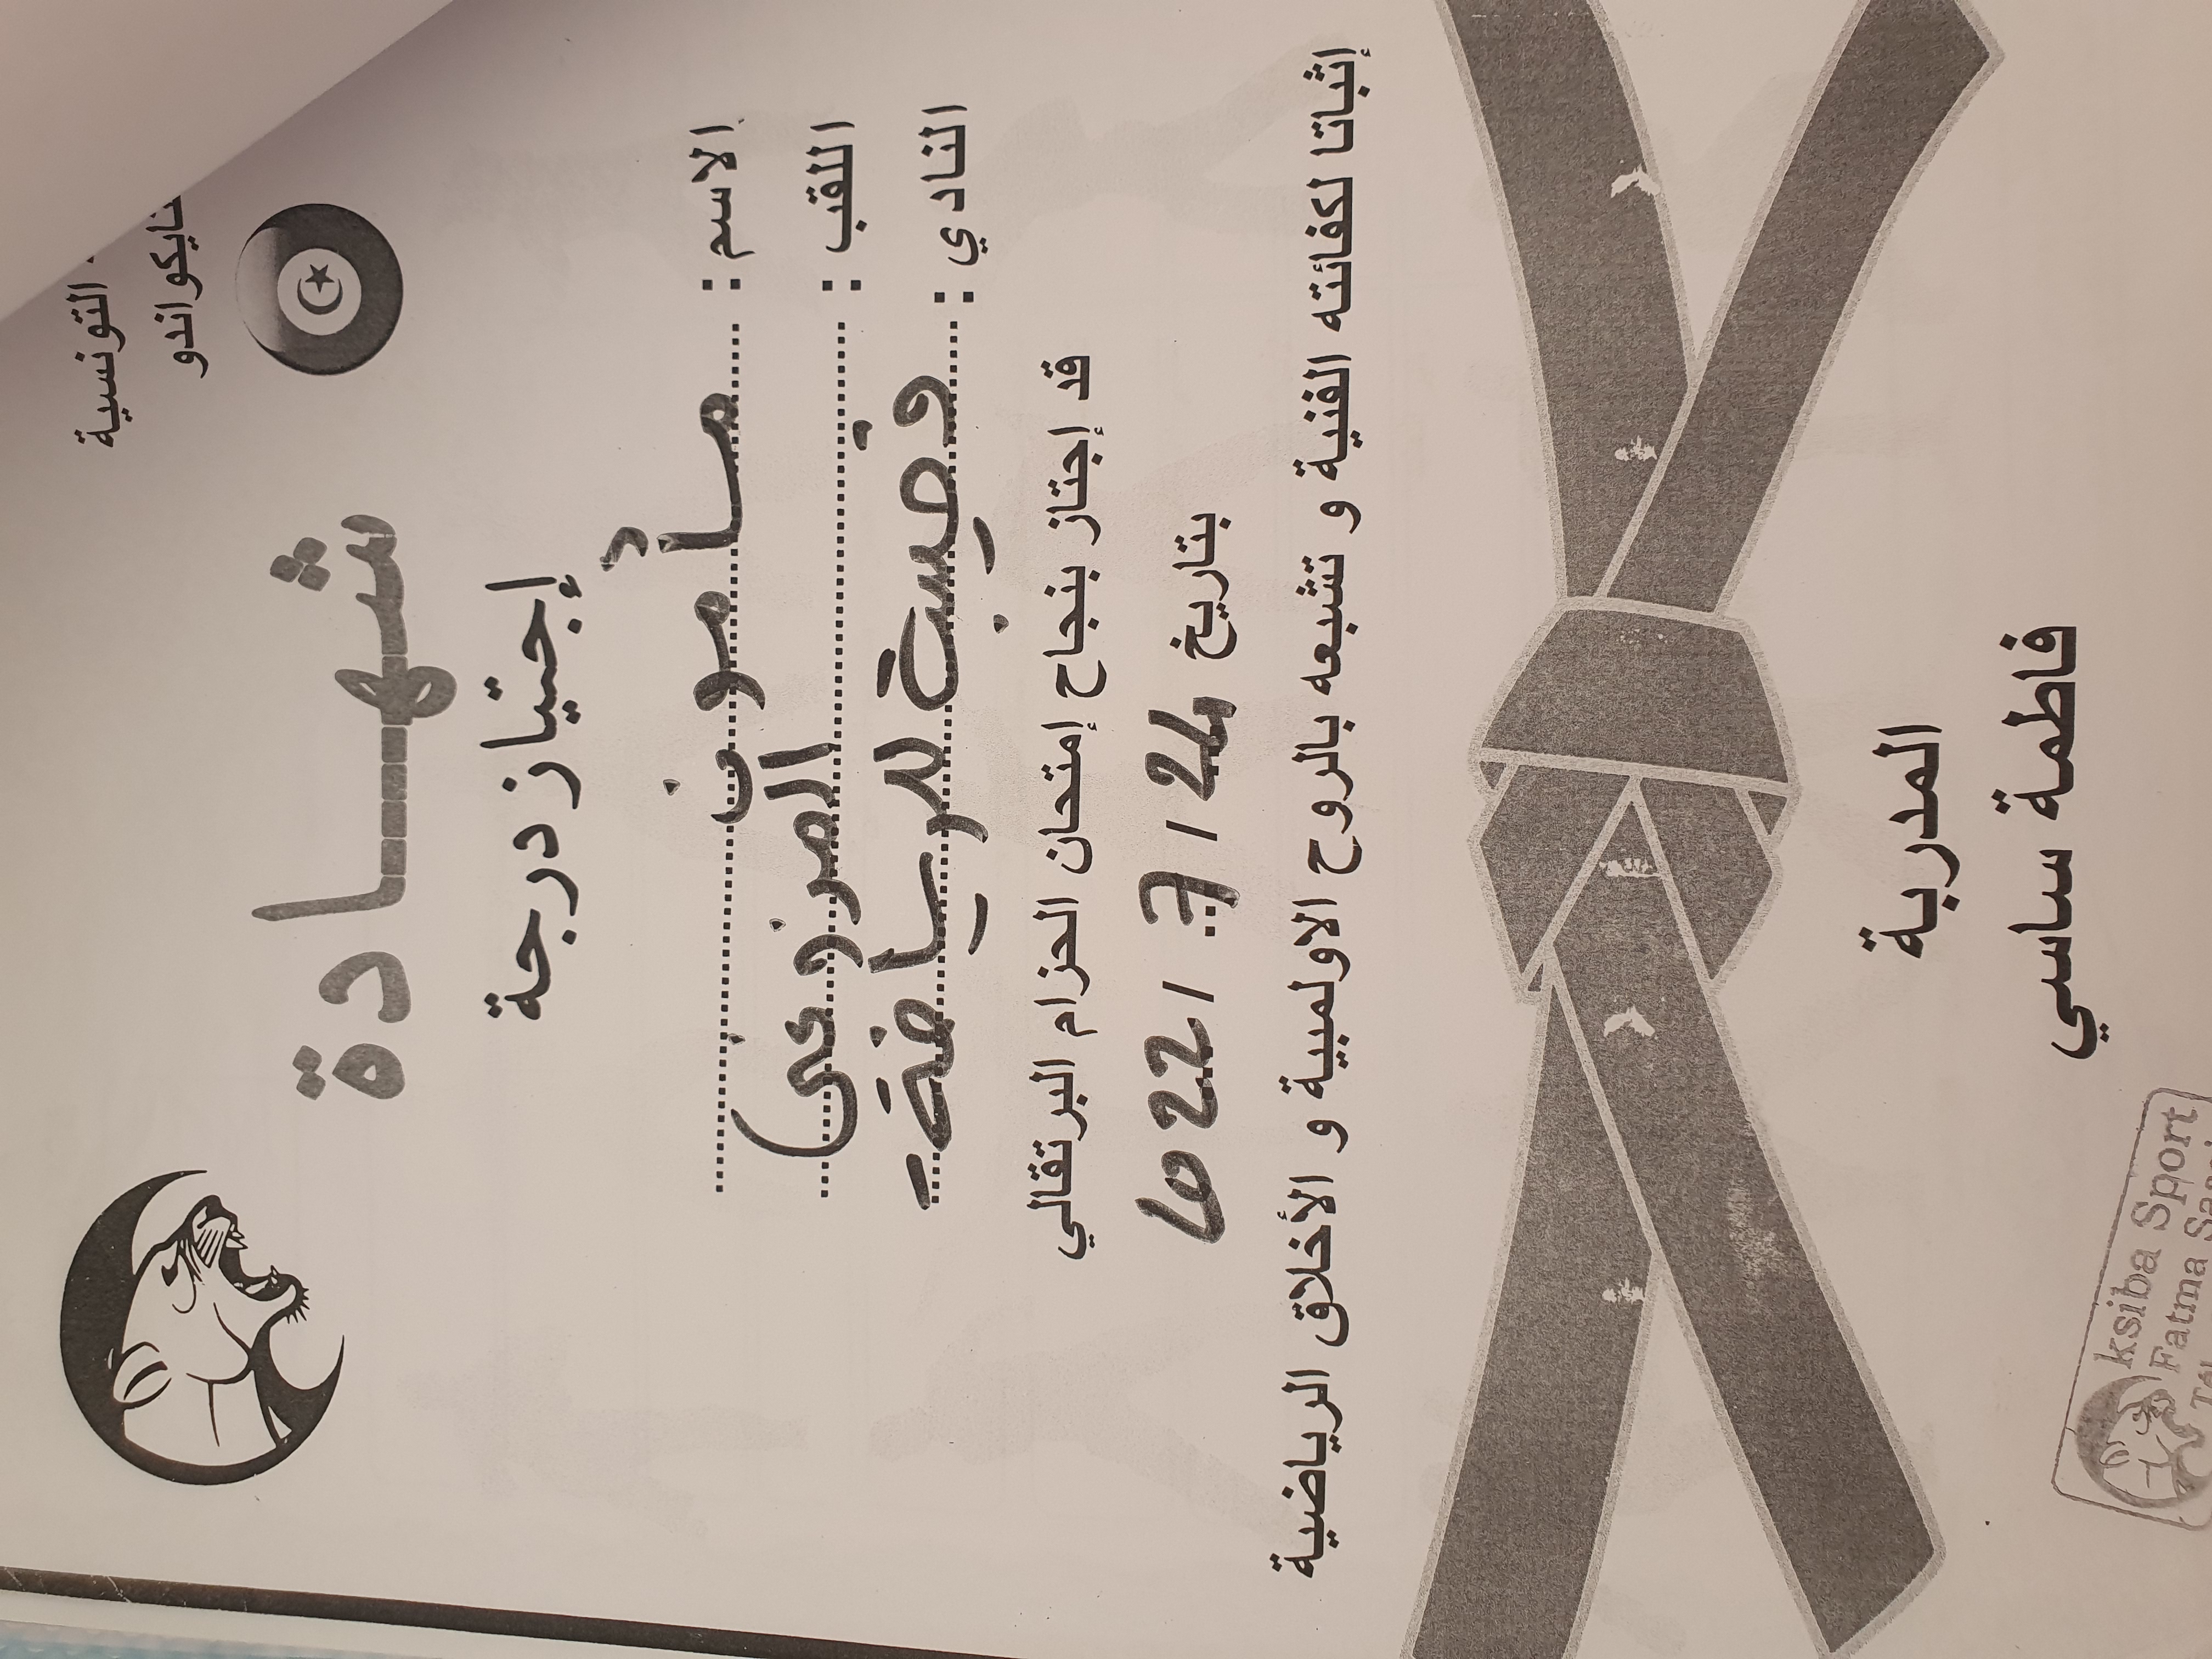 التونسية
تايكواندو
شهادة
إجتياز درجة
الاسم : مأمون
اللقب : المرزوقي
النادي : قصيبة للرياضة
قد إجتاز بنجاح إمتحان الحزام البرتقالي
بتاريخ 24 / 7 / 2022
إثباتا لكفائته الفنية و تشبعه بالروح الاولمبية و الأخلاق الرياضية
المدربة
فاطمة ساسي
ksiba Sport
Fatma Sassi
Tél